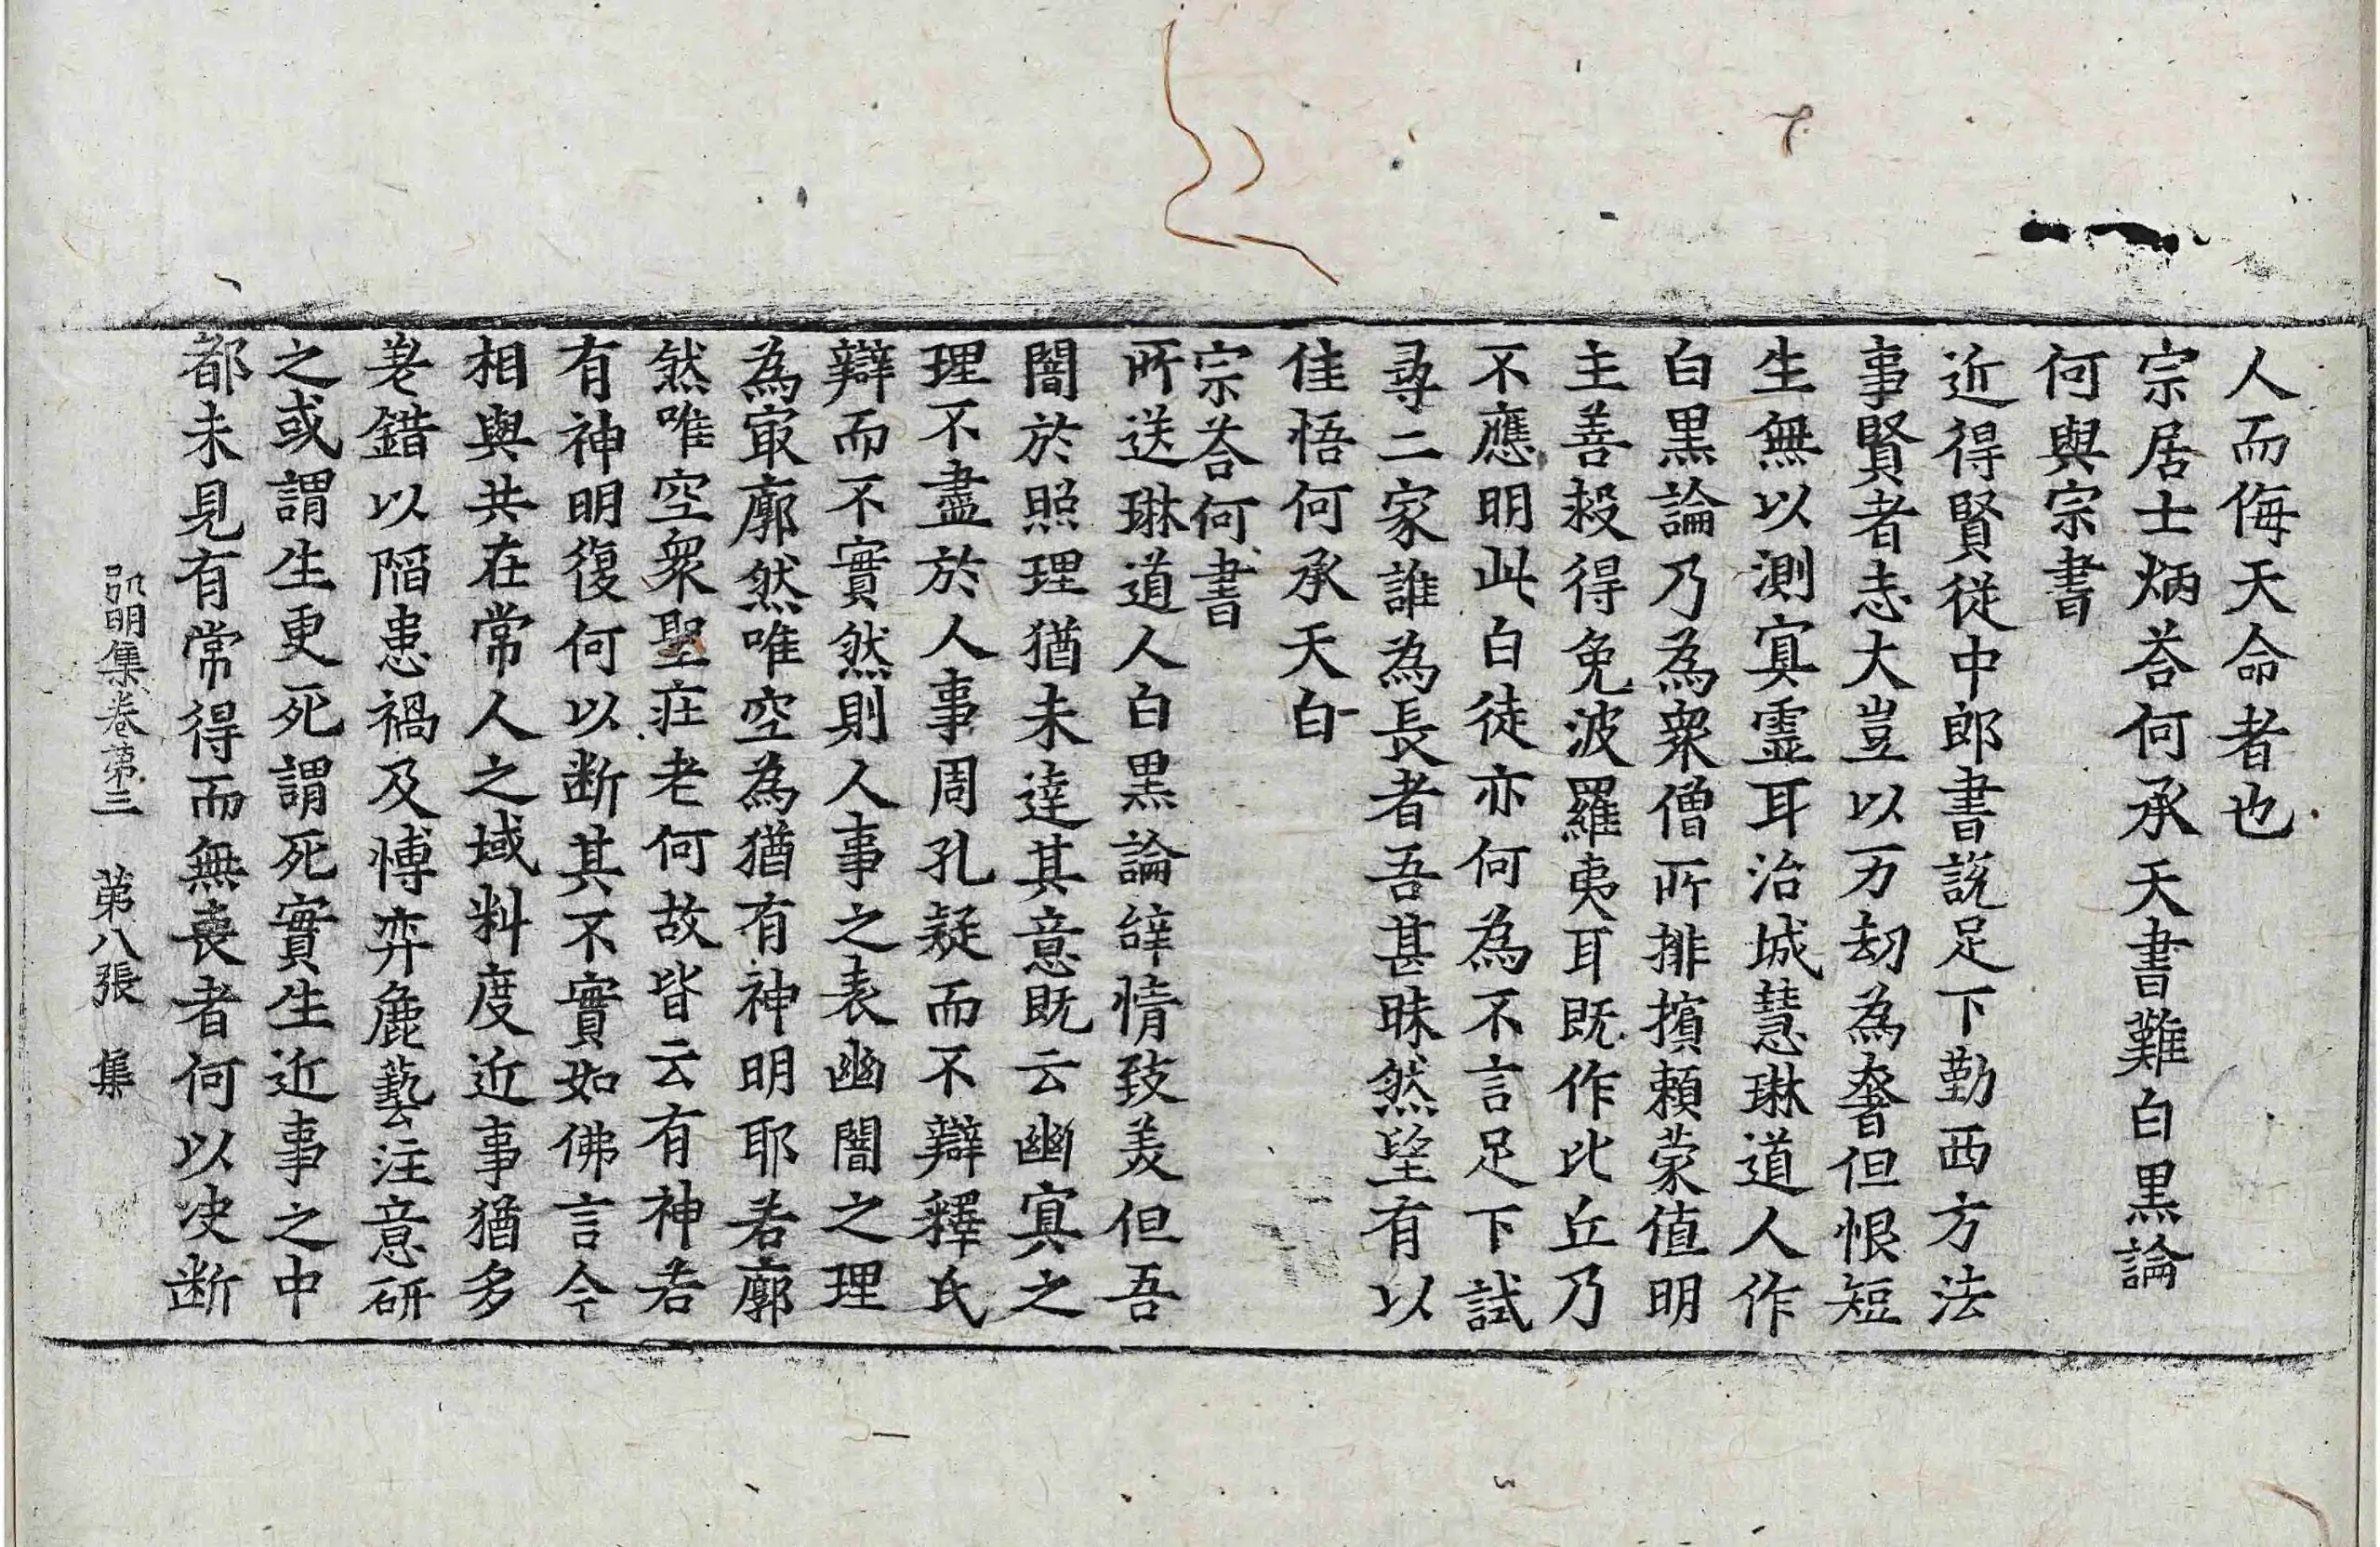 人而侮天命者也
宗居士炳荅何承天書難白黒論
何與宗書
近得賢從中郎書說足下勤西方法
事賢者志大豈以万劫為奢但恨短
生無以測寘霊耳治城慧琳道人作
白黒論乃為衆僧所排擯頼蒙值明
主善殺得免波羅夷耳既作比丘乃
不應明此白徒亦何為不言足下試
尋二家誰為長者吾甚昧然望有以
佳悟何承天白
宗荅何書
所送琳道人白黒論辞情致美但吾
闇於照理猶未達其意既云幽寘之
理不盡於人事周孔疑而不辯釋氏
辯而不實然則人事之表幽闇之理
為㝡廓然唯空為猶有神明耶若廓
然唯空衆聖庄老何故皆云有神若
有神明復何以断其不實如佛言今
相與共在常人之域料度近事猶多
差錯以陷患禍及愽弈麁藝注意研
之或謂生更死謂死實生近事之中
都未見有常得而無喪者何以决断
弘明集卷第三　第八張　集